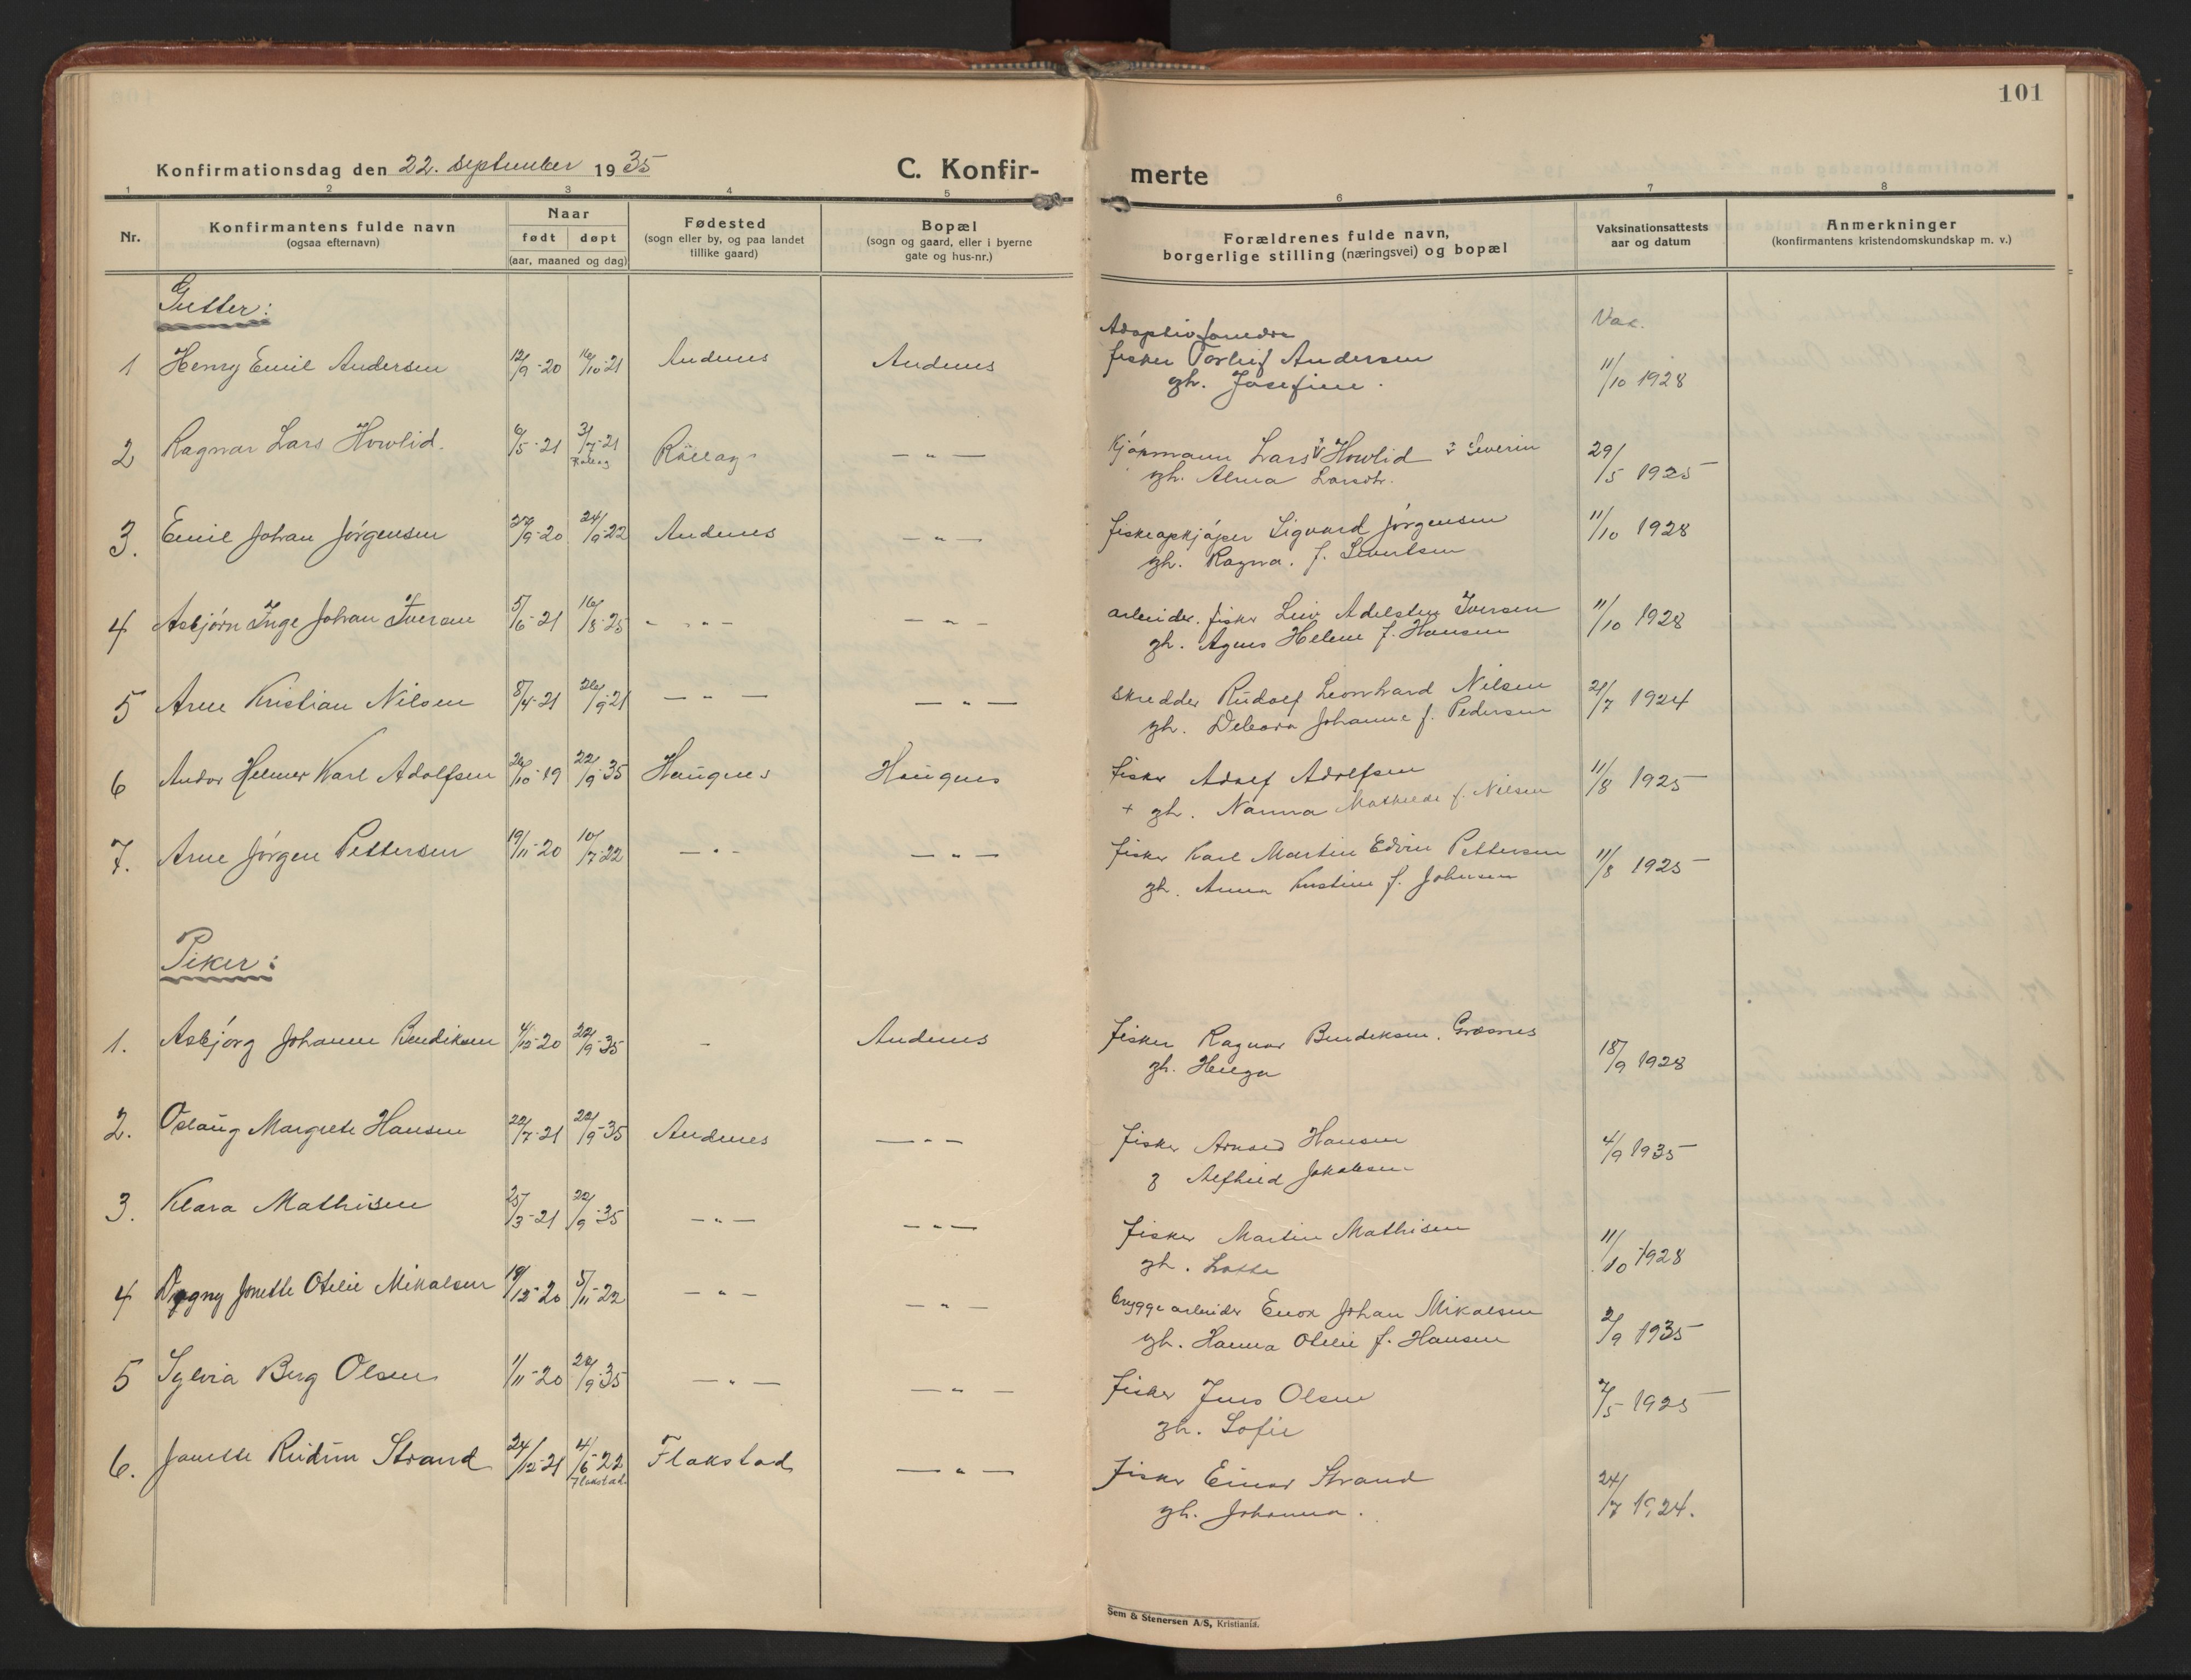 101
Konfirmationsdag den 22. september 1935
C. Konfir-
merte
1 2 3 4 5 6 7 8
Nr.
Konfirmantens fulde navn
(ogsaa efternavn)
Naar
født døpt
(aar, maaned og dag)
Fødested
(sogn eller by, og paa landet
tillike gaard)
Bopæl
(sogn og gaard, eller i byerne
gate og hus-nr.)
Forældrenes fulde navn,
borgerlige stilling (næringsvei) og bopæl
Vaksinationsattests
aar og datum
Anmerkninger
(konfirmantens kristendomskundskap m. v.)
Gutter:
Vac.
Adoptivforeldre
1 Henry Emil Andersen 12/9-20 16/10-21 Andenes Andenes fisker Torleif Andersen 11/10 1928
gh. Josefine.
2 Ragnar Lars Howlid. 6/5-21 31/7-21 Rollag — " — Kjøpmann Lars Howlid Severin 29/5 1925
Rollag
gh. Alma Larsdtr.
3. Emil Johan Jørgensen 27/9-20 24/9-22 Andenes — " — fiskeopkjøper Sigvard Jørgensen 11/10 1928
gh. Ragna. f. Sivertsen
4 Asbjørn Inge Johan Iversen 5/6-21 16/8-25 - " - — " — arbeider. fisker Leiv Adelsten Iversen 11/10 1928
gh. Agnes Helene f. Hansen
5 Arne Kristian Nilsen 8/4-21 26/9-21 — " — — " — skredder Rudolf Leonhard Nilsen 21/7 1924
gh. Debora Johanne f. Pedersen
6 Andor Helmer Karl Adolfsen 26/10-19 22/9-35 Haugnes Haugnes fisker Adolf Adolfsen 11/8 1925
+ gh. Nanna Mathilde f. Nilsen
7. Arne Jørgen Pettersen 19/11-20 10/7-22 — " — — " — fisker Karl Martin Edvin Pettersen 11/8 1925
gh. Anna Kristine f. Johnsen
Piker:
1. Asbjørg Johanne Bendiksen 4/12-20 22/9-35 - Andenes fisker Ragnar Bendiksen, 18/9 1928
gh. Helga
2. Oslaug Margrete Hansen 22/7-21 22/9-35 Andenes — " — fisker Hansen 4/9 1935
Alfhild Jakobsen
3. Klara Mathisen 25/3-21 22/9-35 — " — — " — fisker Martin Mathisen 11/10 1928
gh. Lotte
4 Dagny Jonette Otelie Mikalsen 19/12-20 5/11-22 — " — — " — bryggearbeider Enok Johan Mikalsen 2/9 1935
gh. Hanna Otelie f. Hansen
5 Sylvia Berg Olsen 1/11-20 22/9-35 — " — — " — fisker Jens Olsen 7/5 1925
gh. Sofie
6. Janette Reidun Strand 24/12-21 4/6-22 Flakstad — " — fisker Einar Strand 24/7 1924.
Flakstad
gh. Johanna.
Sem & Stenersen A/S, Kristiania.